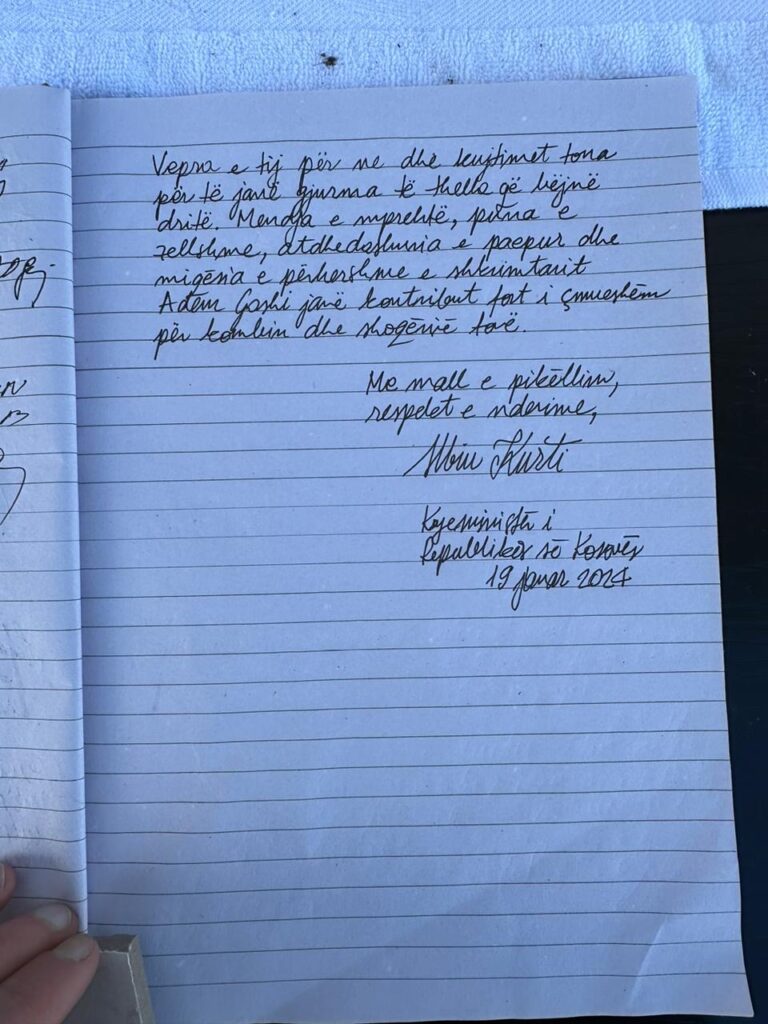 Vepra e tij për ne dhe kujtimet tona
për të janë gjurma të thella që bëjnë
dritë. Mendja e mprehtë, puna e
zellshme, atdhedashuria e paepur dhe
miqësia e përhershme e shkrimtarit
Adem Gashi janë kontribut fort i çmueshëm
për kombin dhe shoqërinë tonë.
Me mall e pikëllim,
respekt e nderime,
Albin Kurti
Kryeministër i
Republikës së Kosovës
19 janar 2024